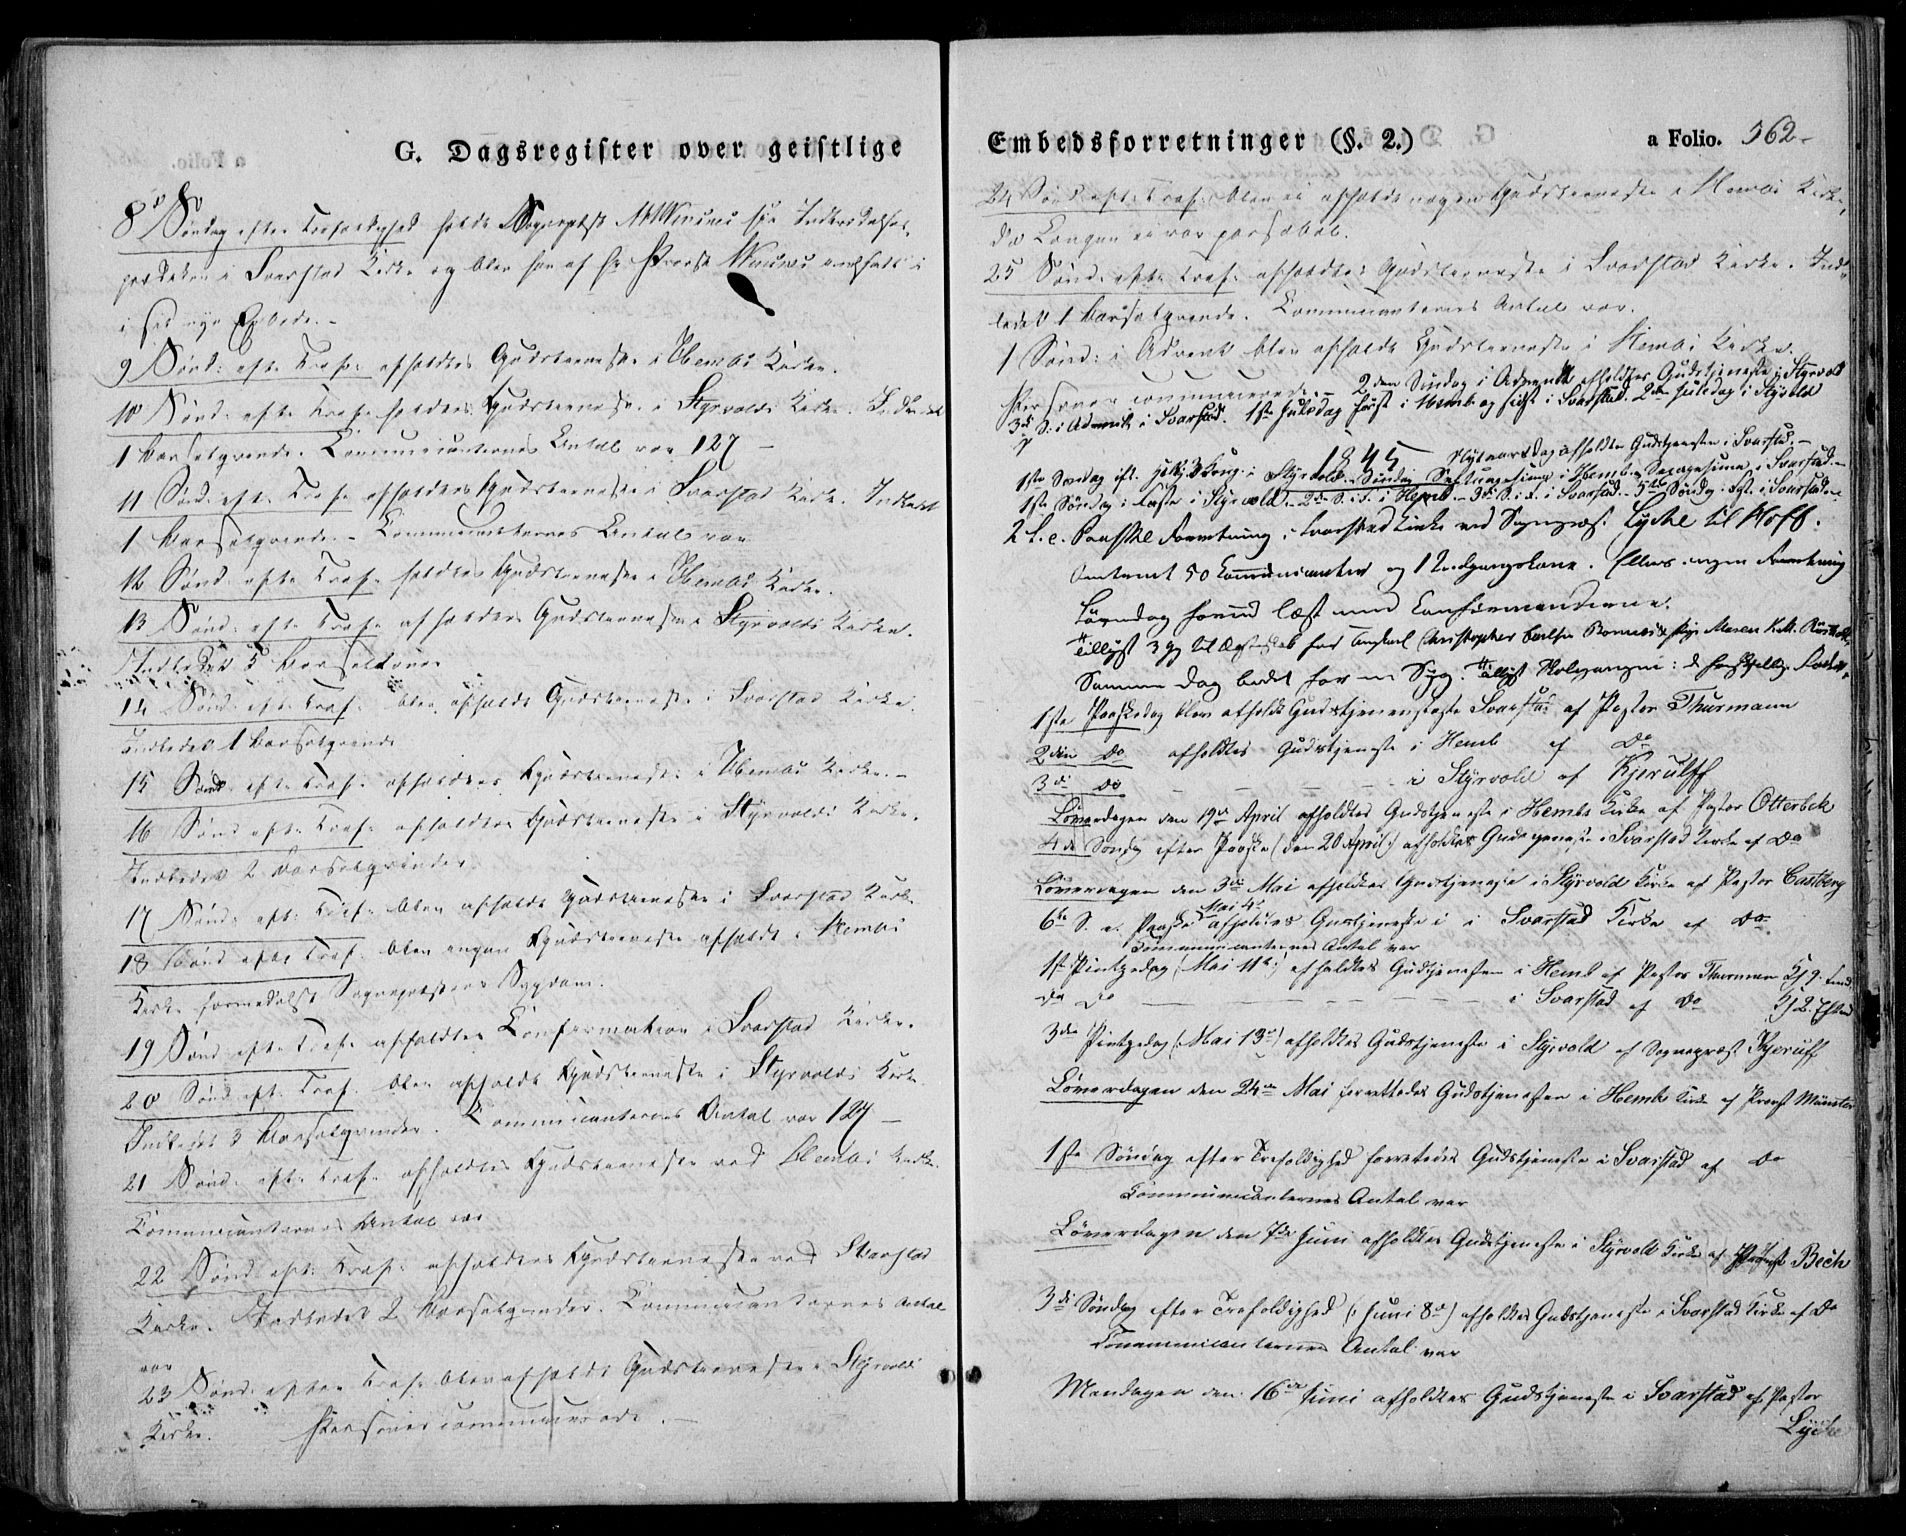 G. Dagsregister over geistlige
8de Søndag efter Trefoldighed holdt Sognepræst Winsnes sin Indtrædelses-
prædiken i Svarstad Kirke og blev han af Hr Provst indsatt i
i sit nye Embede. -
9 Sønd: eft. Tref: afholdtes Gudstieneste i Hembs Kirke.
10 Sønd: eft. Tref: holdtes Gudstieneste i Styrvolds Kirke. Indledet
1 Barselqvinde. Communicanternes Antal var 127 -
11 Sønd: eft. Tref: afholdtes Gudstieneste i Svarstad Kirke. Indledet
1 Barselqvinde. - Communicanternes Antal var
12 Sønd: eft. Tref: holdtes Gudstieneste i Hembs Kirke.
13 Sønd: eft. Tref: afholdtes Gudstieneste i Styrvolds Kirke.
Indledet 5 Barselkoner
14 Sønd: eft. Tref: blev afholdt Gudstieneste i Svarstad Kirke.
Indledet 1 Barselqvinde
15 Sønd: eft. Tref: afholdtes Gudstieneste i Hembs Kirke. -
16 Sønd: eft. Tref: afholdtes Gudstieneste i Styrvolds Kirke.
Indledet 2 Barselqvinder.
17 Sønd: eft: Tref: blev afholdt Gudstieneste i Svarstad Kirke
18 Sønd: eft. Tref: blev ingen Gudstieneste afholdt i Hembs
Kirke formedelst Sognepræstens Sygdom.
19 Sønd: eft. Tref: afholdtes Confirmation i Svarstad Kirke.
20 Sønd: eft. Tref: blev afholdt Gudstieneste i Styrvolds Kirke.
Indledet 3 Barselqvinder. Communicanternes Antal var 127 -
21 Sønd: eft. Tref: afholdtes Gudstieneste ved Hembs Kirke.
Communicanternes Antal var
22 Sønd: eft: Tref: afholdtes Gudstieneste ved Svarstad
Kirke. Indledet 2 Barselqvinder. Communicanternes Antal
var
23 Sønd: efter Tref: blev afholdt Gudstieneste i Styrvolds
Kirke. Personer communicerede. -
Embedsforretninger (§. 2.)
a Folio. 562-
24 Sønd: eft. Tref: blev ei afholdt nogen Gudstieneste i Hembs Kirke,
da Laugen ei var passabel.
25 Sønd: eft. Tref: afholdtes Gudstieneste i Svarstad Kirke. Ind-
ledet 1 Barselqvinde. Communicanternes Antal var.
1 Sønd: i Advent blev afholdt Gudstieneste i Hembs Kirke.
Personer communicerede. - 2den Søndag i Advent afholdtes Gudstjeneste i Styrvold
3die S. i Advent i Svarstad. 1ste Juledag først i Hemb og sidst i Svarstad. 2den Juledag i Styrvold
1845 Nytaarsdag afholdtes Gudstjeneste i Svarstad. -
1ste Søndag eft. Hellig 3 Kong. i Styrvold. - Søndag Septuagesima i Hemb - Sexagesima i Svarstad. -
1ste Søndag i Faste i Styrvold. - 2den S. i F. i Hemb. - 3die S. i F. i Svarstad. 5te Søndag i Fst. i Svarstad. -
Forretning i Svarstad Kirke ved Sognepræst Lyche til Hoff.
Omtrent 50 Communicanter og 1 Indgangskone. Ellers ingen Forretning
Løverdag forud læst med Confirmanterne.
Tillyst 3 Gg til Ægteskab for Ungkarl Christopher og Pige Maren
Samme Dag bedet for en Syg.
1ste Paaskedag blev afholdt Gudstjeneste i Svarstad af Pastor Thurmann
2den Do afholdtes Gudstjeneste i Hemb af Do
3die Do - - - - i Styrvold af Kjerulff
Løverdagen den 19de April afholdtes Gudstjeneste i Hembs Kirke af Pastor Otterbeck
4de Søndag efter Paaske (den 20 April) afholdtes Gudstjeneste i Svarstad Kirke af Do
Løverdagen den 3die Mai afholdtes Gudstjeneste i Styrvold Kirke af Pastor Castberg
6te S. e. Paaske Mai 4de afholdtes Gudstjeneste i i Svarstad Kirke af Do.
Communicanternes Antal var
1ste Pintsedag (Mai 11te) afholdtes Gudstjenesten i Hemb af Pastor Thurman Kl 9. Formd
Do Do - - - - - - i Svarstad af Do Kl 2. Eftmd
3die Pintsedag (Mai 13de) afholdtes Gudstjeneste i Styrvold af Sognepræst Kjerulff
Løverdagen den 24de Mai forrettedes Gudstjenesten i Hembs Kirke af Provst Münster
1ste Søndag efter Trefoldighed forrettedes Gudstjeneste i Svarstad af Do
Communicanternes Antal var
Løverdagen den 7de Juni afholdtes Gudstjeneste i Styrvold Kirke af Bech
3die Søndag efter Trefoldighed (: Juni 8de) afholdtes Gudstjeneste i Svarstad Kirke af Do
Communicanternes Antal var
Mandagen den 16de Juni afholdtes Gudstjeneste i Svarstad af Pastor
Lyche